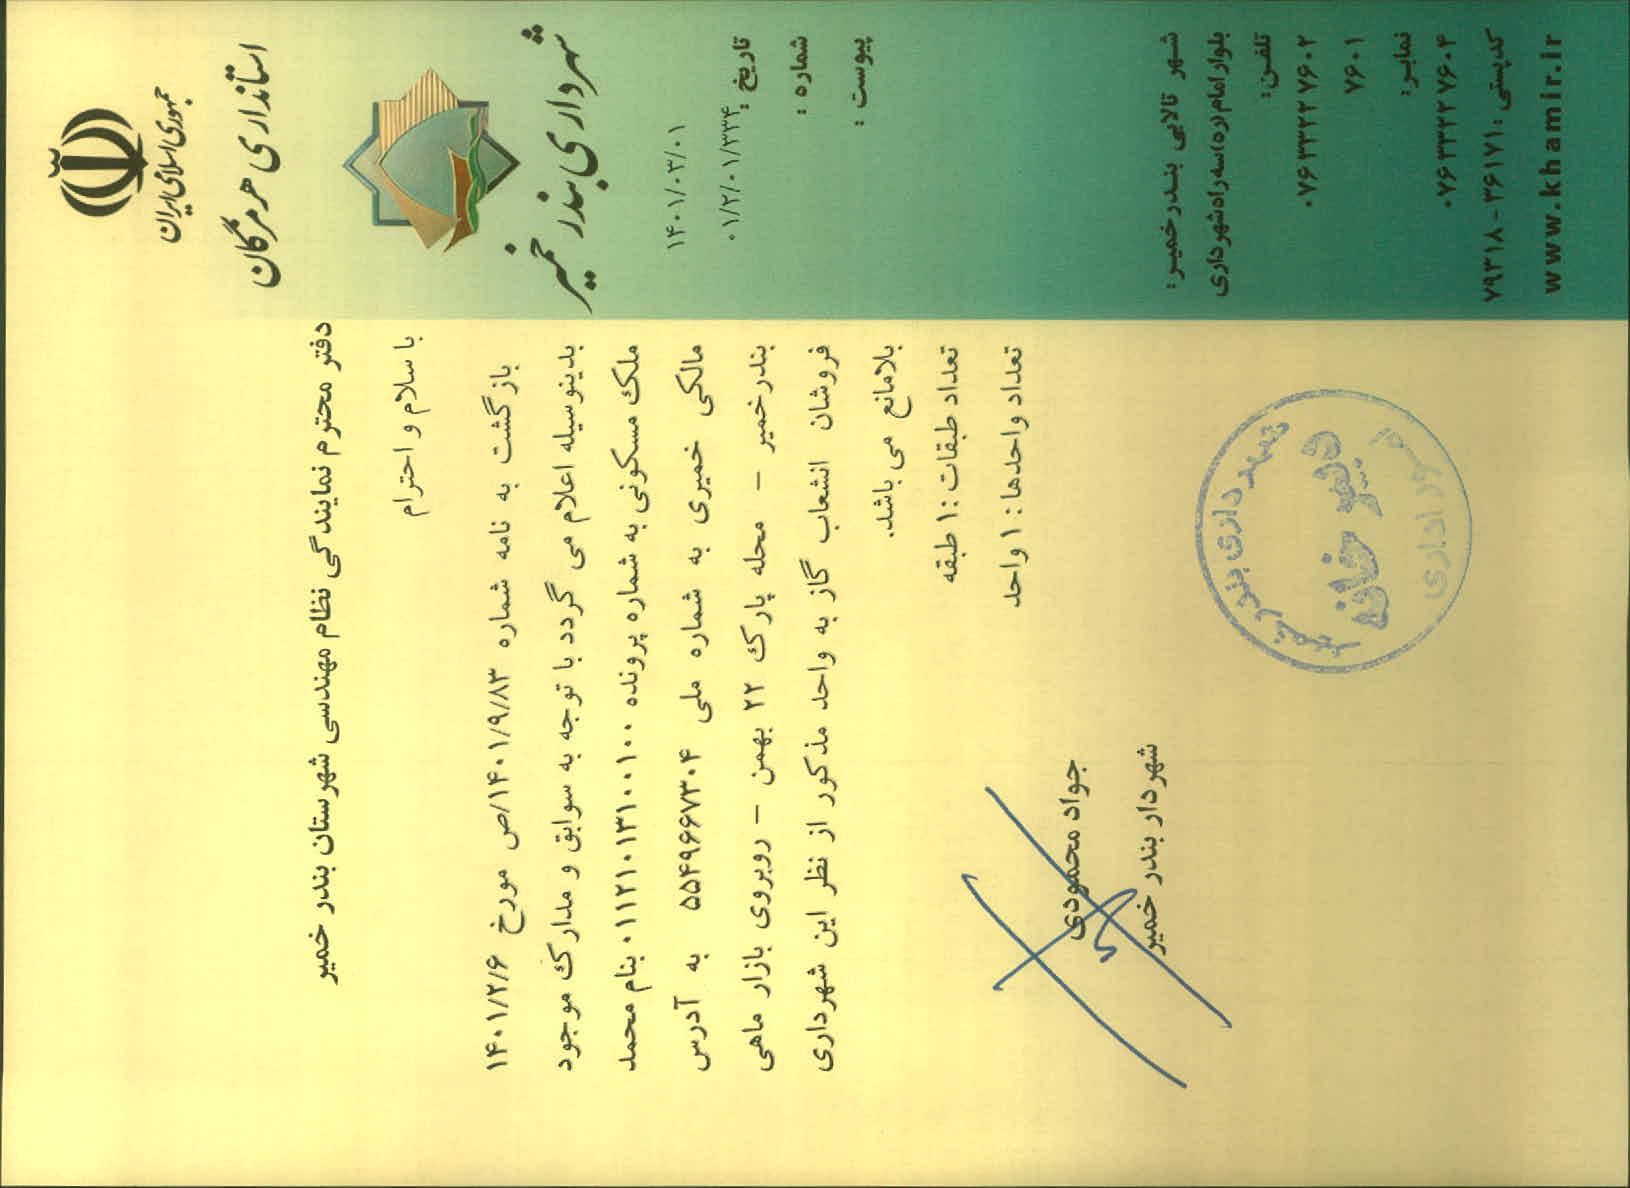 جمهوری اسلامی ایران
استانداری هرمزگان
شهرداری بندر خمیر
۱۴۰۱/۰۳/۰۱
تاریخ :
۰۱/۲/۰۱/۳۳۴
شماره :
پیوست :
دفتر محترم نمایندگی نظام مهندسی شهرستان بندر خمیر
با سلام و احترام
بازگشت به نامه شماره ۱۴۰۱/۹/۸۳/ص مورخ ۱۴۰۱/۲/۶
بدینوسیله اعلام می گردد با توجه به سوابق و مدارک موجود
ملک مسکونی به شماره پرونده ۰۱۱۲۱۰۱۳۱۰۰۱۰۰ بنام محمد
مالکی خمیری به شماره ملی ۵۵۴۹۶۶۷۳۰۴ به آدرس
بندرخمیر – محله پارک ۲۲ بهمن – روبروی بازار ماهی
فروشان انشعاب گاز به واحد مذکور از نظر این شهرداری
بلامانع می باشد.
تعداد طبقات : ۱ طبقه
تعداد واحدها : ۱ واحد
جواد محمودی
شهردار بندر خمیر
شهرداری بندر خمیر
دبیرخانه
امور اداری
شهر تالابی بندرخمیر:
بلوار امام(ره)سه راه شهرداری
تلفن:
۰۷۶۳۳۲۲۷۶۰۲
۷۶۰۱
نمابر:
۰۷۶۳۳۲۲۷۶۰۴
کدپستی :۳۶۱۷۱ - ۷۹۳۱۸
www.khamir.ir